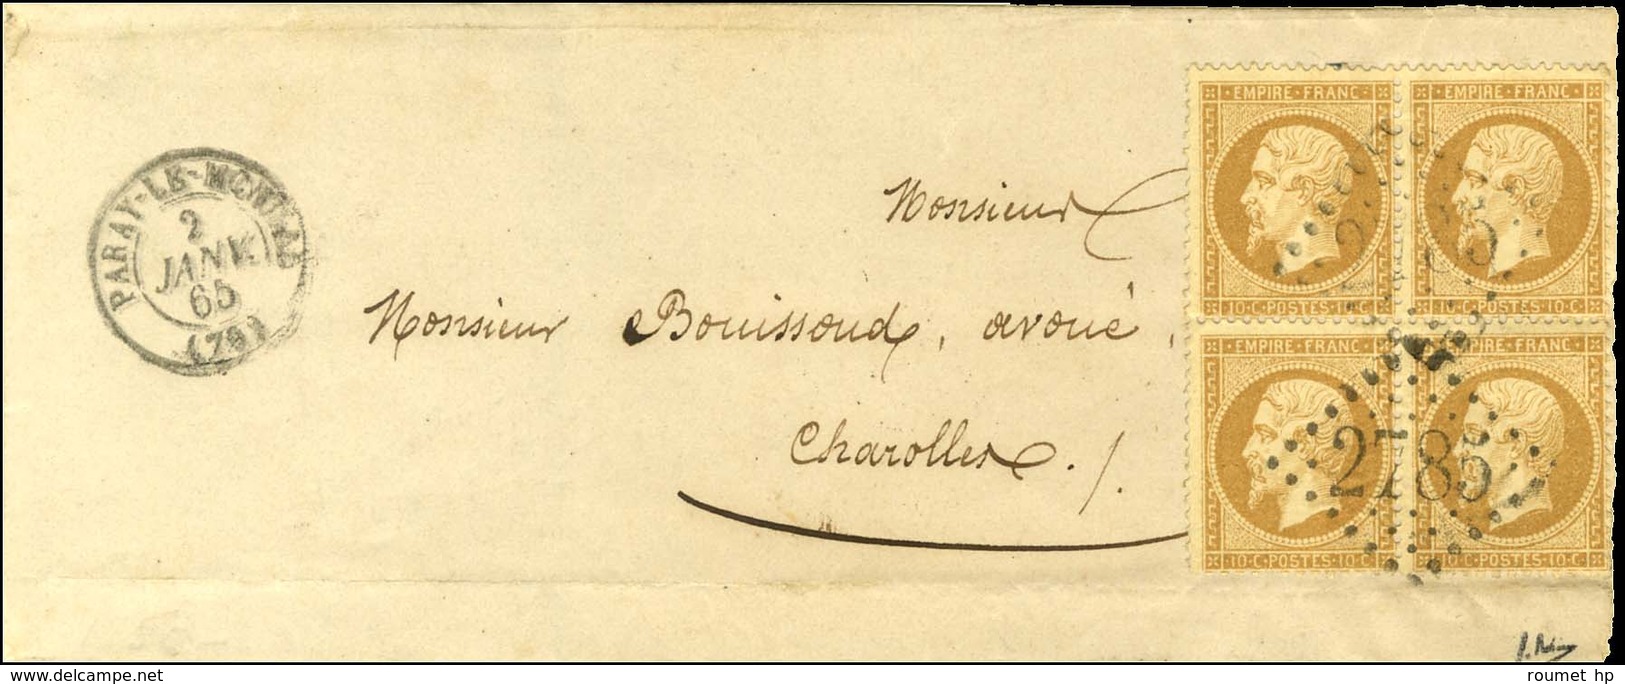 PARAY-LE-MONIAL
2
JANV.
65
(79)
Monsieur
Monsieur Bouissoud, avoué,
Charolles.
EMPIRE · FRANC
EMPIRE · FRANC
10·C·POSTES·10·C
10·C·POSTES·10·C
EMPIRE · FRANC
EMPIRE · FRANC
2785
10·C·POSTES·10·C
10·C·POSTES·10·C
roumet hp